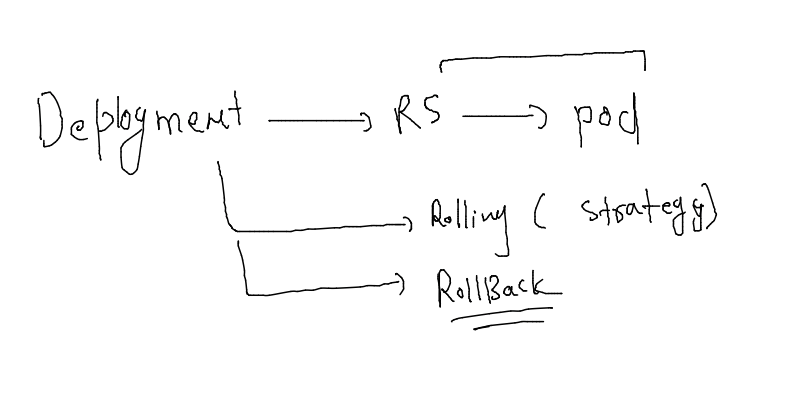 Deployment → RS → pod
→ Rolling ( strategy)
→ RollBack